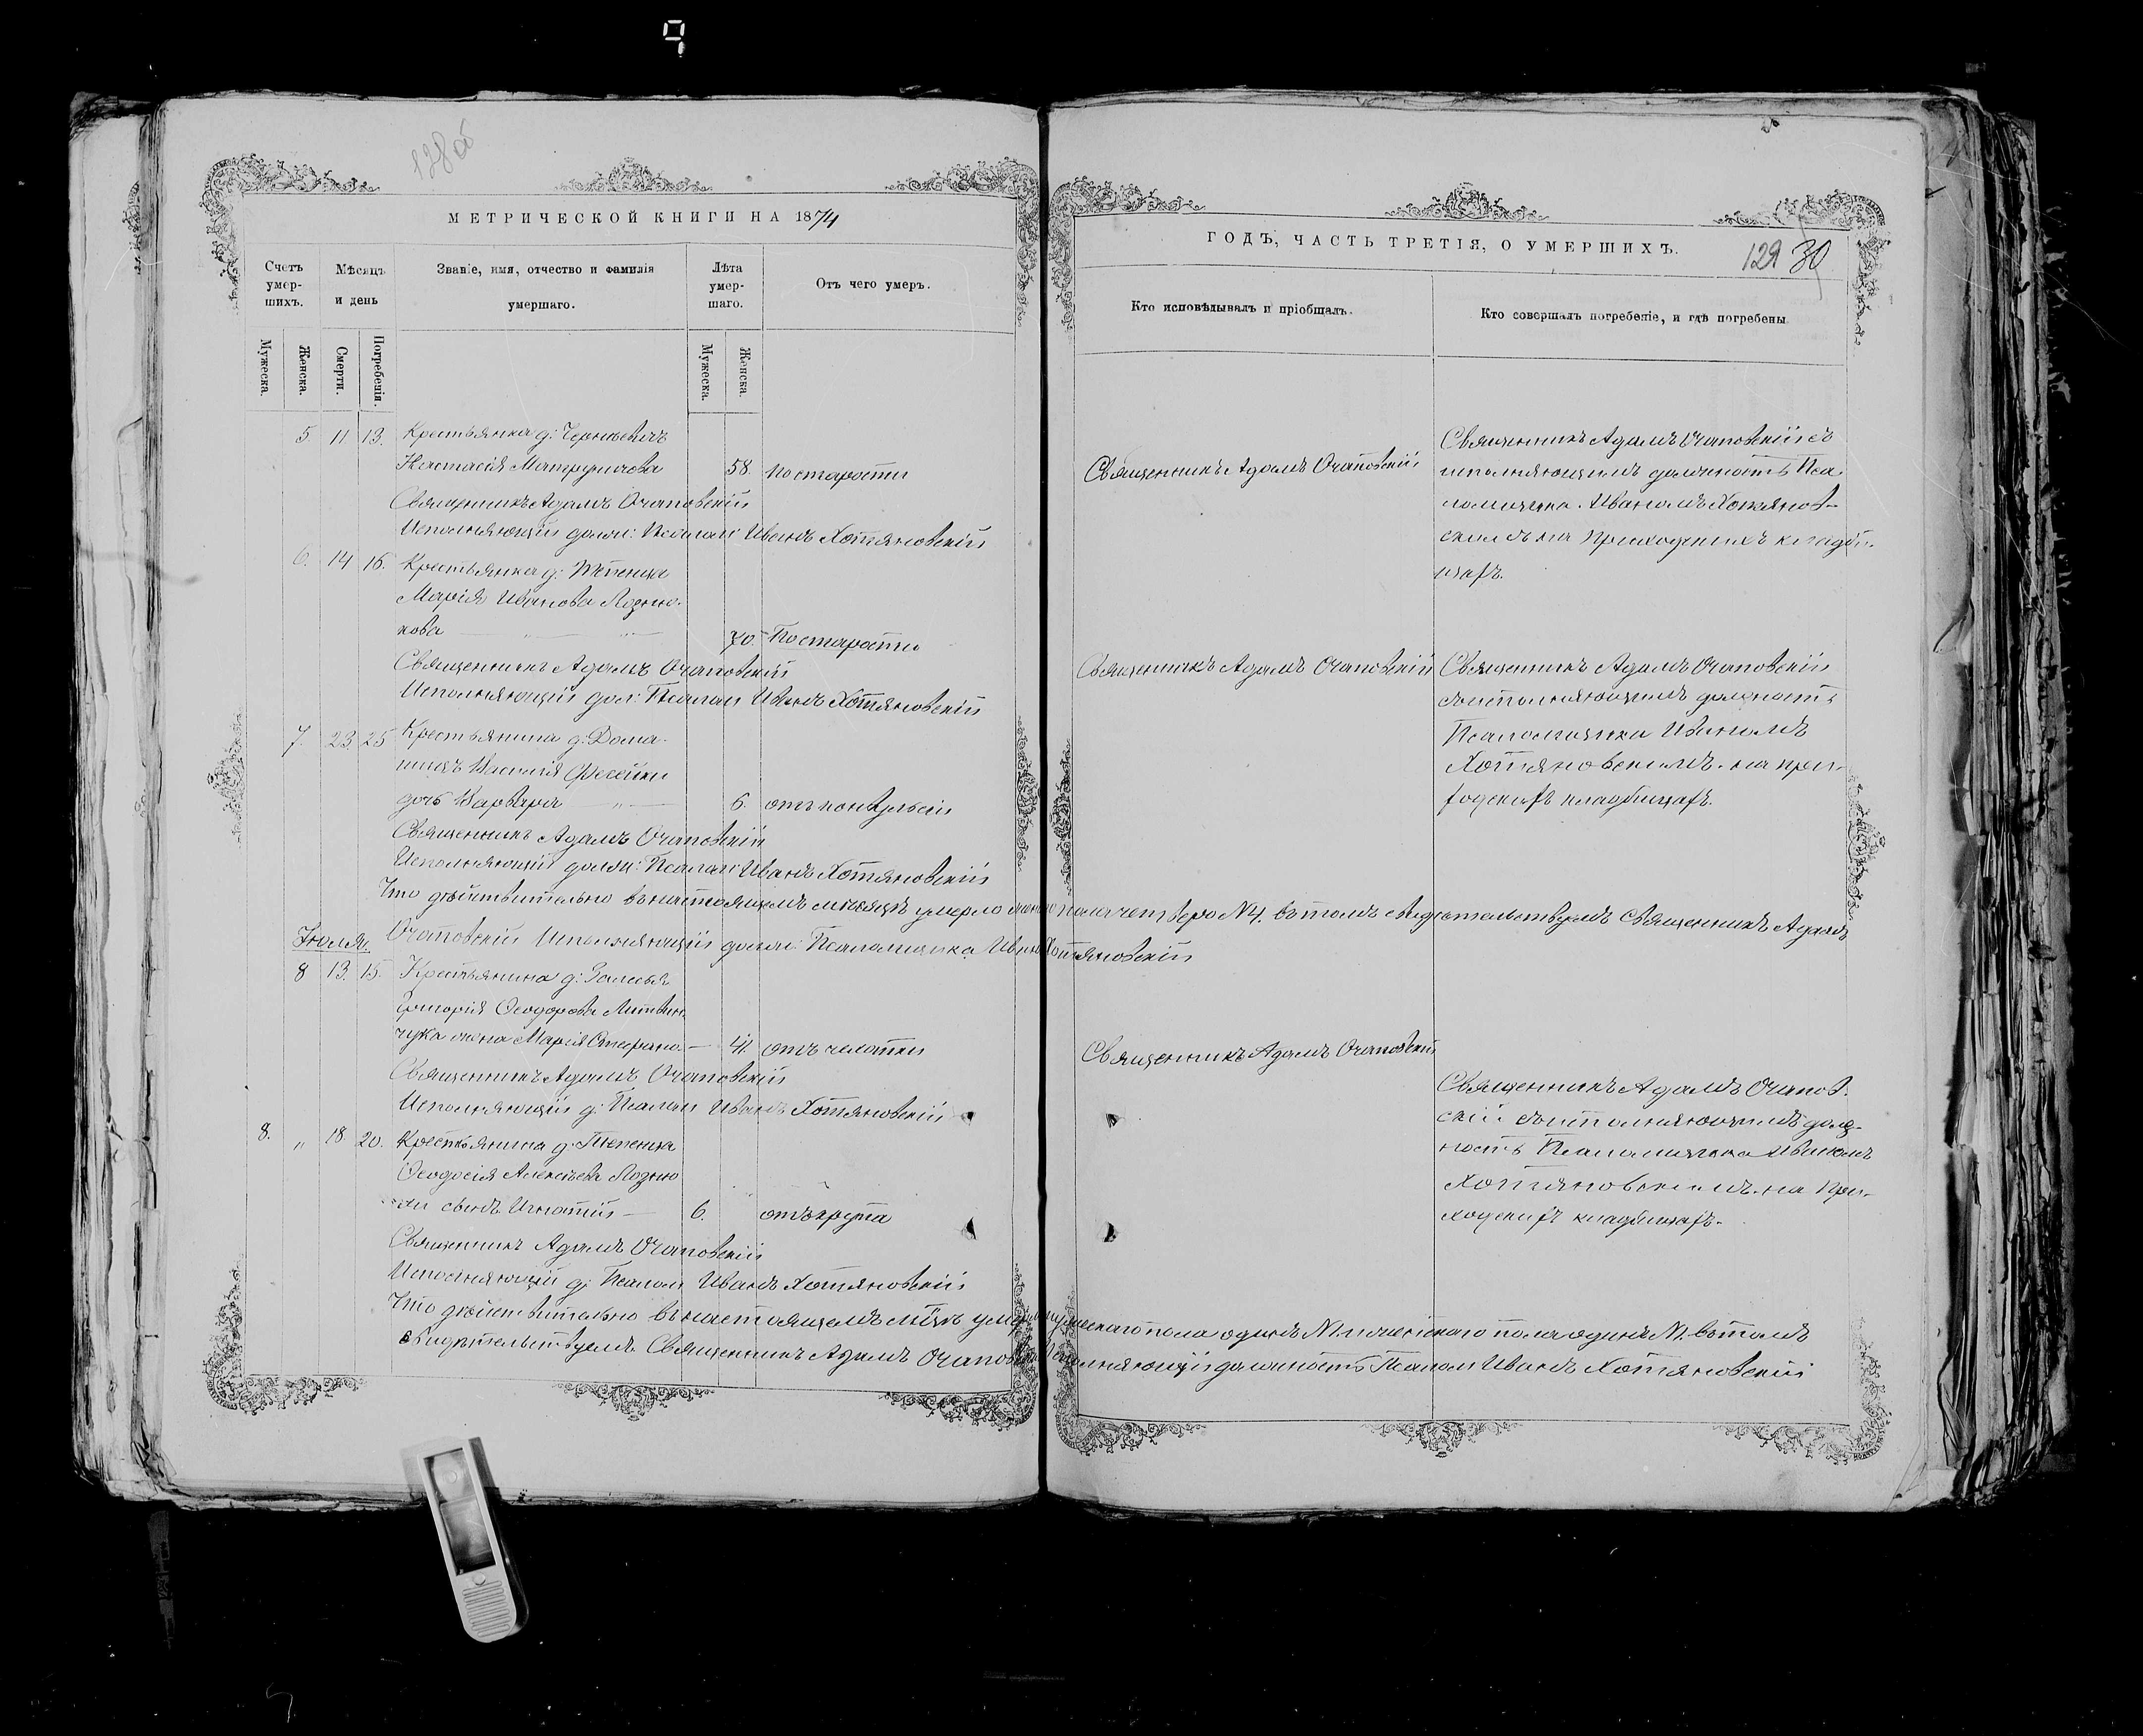 9
128об
МЕТРИЧЕСКОЙ КНИГИ НА 1874
Счетъ умер-шихъ.
Мѣсяцъ и день
Званіе, имя, отчество и фамилія умершаго.
Лѣта умер-шаго.
Отъ чего умеръ.
Мужеска.
Женска.
Смерти.
Погребенія.
Мужеска.
Женска.
5 11 13. Крестьянка д:
58. по старости
Священникъ Адамъ Очаповскій
Исполняющій долж: Псалом: Иванъ Хотяновскій
6. 14 16. Крестьянка д:
Марія Иванова Лозню-
кова
70. По старости
Священникъ Адамъ Очаповскій
Исполняющій дол: Псалом Иванъ Хотяновскій
7. 23 25 Крестьянина д: Дома-
дочь Варвара 6.
Священникъ Адамъ Очаповскій
Исполняющій долж: Псалом: Иванъ Хотяновскій
Что дѣйствительно въ настоящемъ мѣсяцѣ умерло пола четверо №4. въ томъ свидѣтельствуемъ Священникъ Адамъ
Очаповскій Исполняющій долж: Псаломщика Иванъ Хотяновскій
Іюля.
8 13. 15. Крестьянина д:
Григорія Ѳеодорова Литвин-
чука жена Марія
41. отъ чахотки
Священникъ Адамъ Очаповскій
Исполняющій д: Псалом Иванъ Хотяновскій
8. " 18. 20. Крестьянина д:
Ѳеодосія Алексѣева Лозню
сынъ Игнатій 6. отъ крупа
Священникъ Адамъ Очаповскій
Исполняющій д: Псалом Иванъ Хотяновскій
Что дѣйствительно въ настоящемъ мцѣ мужескаго пола одинъ №1. и женскаго пола одинъ №1. въ томъ
свидѣтельствуемъ Священникъ Адамъ Очаповскій Исполняющій должность Псалом Иванъ Хотяновскій
ГОДЪ, ЧАСТЬ ТРЕТІЯ, О УМЕРШИХЪ.
129 30
Кто исповѣдывалъ и пріобщалъ.
Кто совершалъ погребеніе, и гдѣ погребены
Священникъ Адамъ Очаповскій
Священникъ Адамъ Очаповскій съ
исполняющимъ должность Пса-
ломщика Иваномъ Хотянов-
скимъ на приходскихъ кладби-
щахъ.
Священникъ Адамъ Очаповскій
Священникъ Адамъ Очаповскій
съ исполняющимъ должность
Псаломщика Иваномъ
Хотяновскимъ на при-
ходскихъ кладбищахъ.
Священникъ Адамъ Очаповскій
Священникъ Адамъ Очапов-
скій съ исполняющимъ долж-
ность Псаломщика Иваномъ
Хотяновскимъ на при-
ходскихъ кладбищахъ.